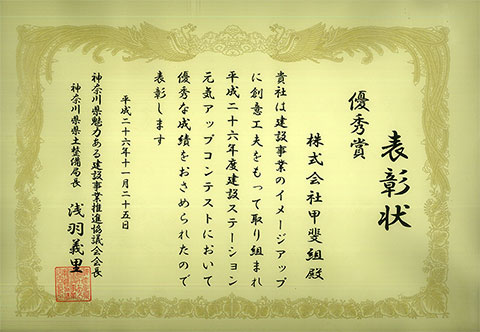 表彰状
優秀賞
株式会社甲斐組殿
貴社は建設事業のイメージアップ
に創意工夫をもって取り組まれ
平成二十六年度建設ステーション
元気アップコンテストにおいて
優秀な成績をおさめられたので
表彰します
平成二十六年十一月二十五日
神奈川県魅力ある建設事業推進協議会会長
神奈川県県土整備局長
浅羽義里